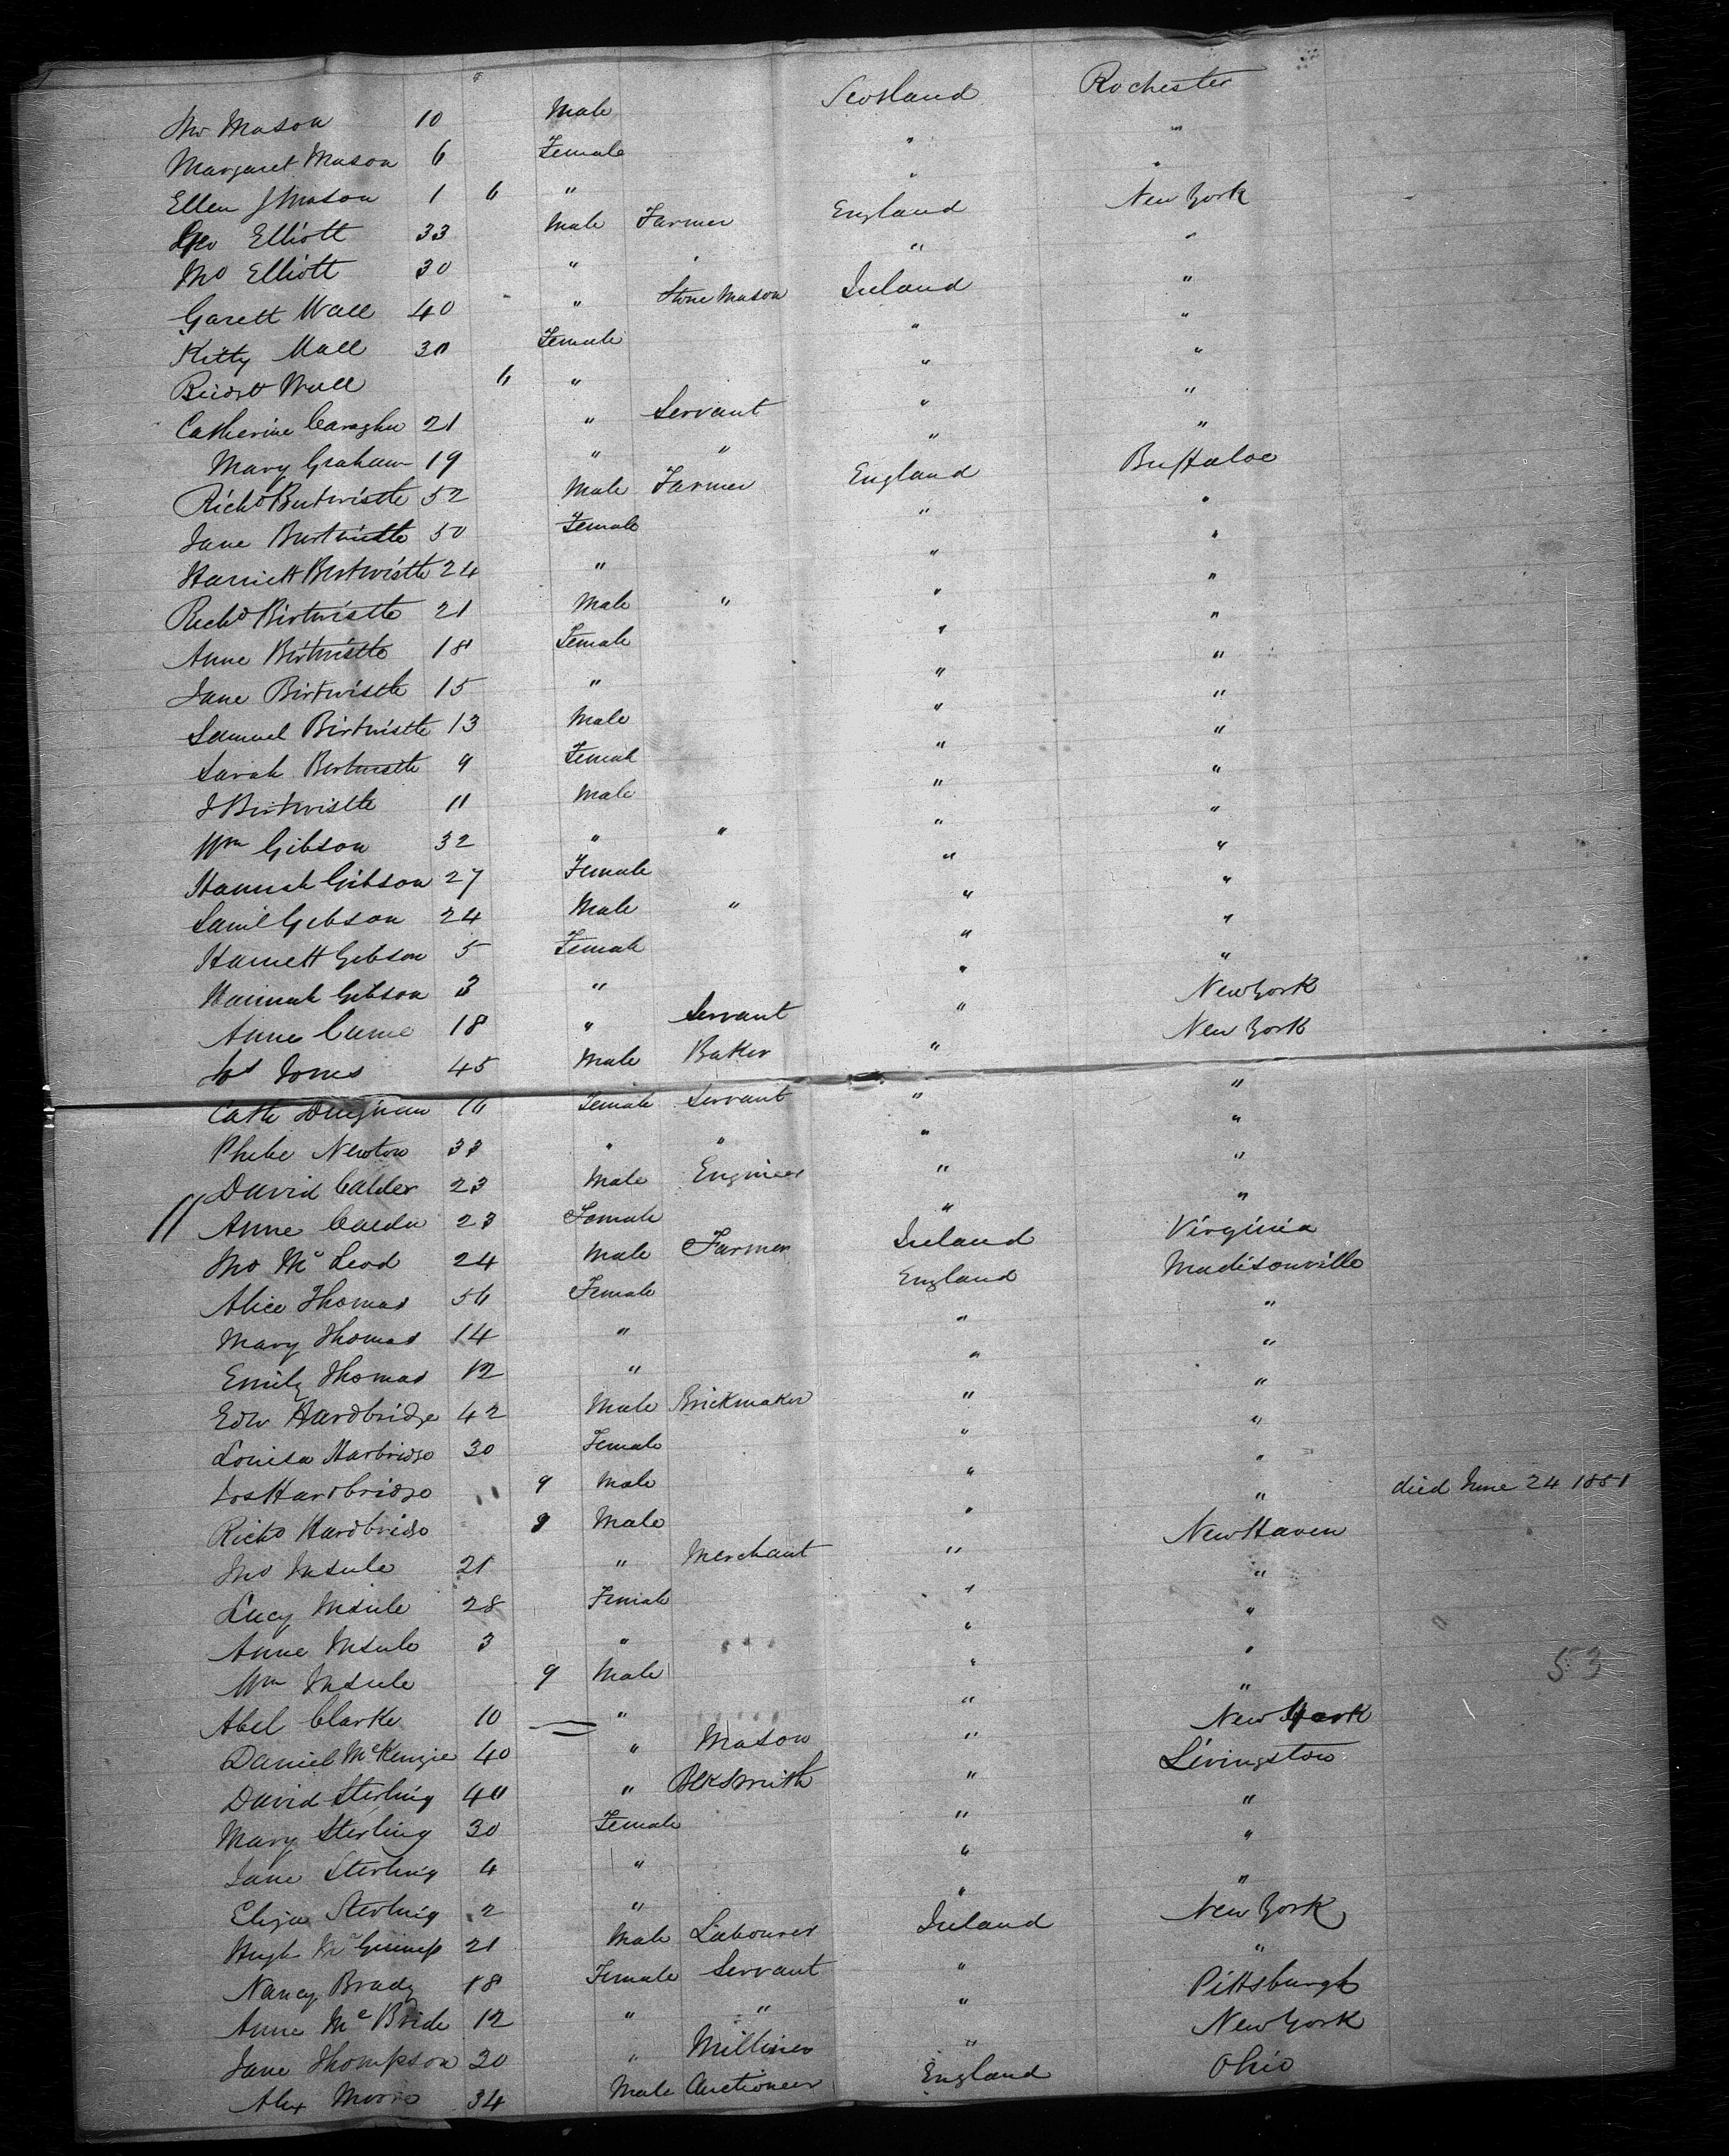 Jno Mason 10 Male Scotland Rochester
Margaret Mason 6 Female " "
Ellen J Mason 1 6 " " "
Geo Elliott 33 Male Farmer England New York
Jno Elliott 30 " " " "
Garett Wall 40 " Stone Mason Ireland "
Kitty Wall 30 Female " "
Bridgt Wall 6 " " "
Catherine 21 " Servant " "
Mary Graham 19 " " " "
Richd Birtwistle 52 Male Farmer England Buffaloe
Jane Birtwistle 50 Female " "
Harriett Birtwistle 24 " " "
Richd Birtwistle 21 Male " " "
Anne Birtwistle 18 Female " "
Jane Birtwistle 15 " " "
Samuel Birtwistle 13 Male " "
Sarah Birtwistle 9 Female " "
J Birtwistle 11 Male " "
Wm Gibson 32 " " " "
Hannah Gibson 27 Female " "
Saml Gibson 24 Male " " "
Harriett Gibson 5 Female " "
Hannah Gibson 3 " " "
Anne 18 " Servant " New York
Jos Jones 45 Male Baker " New York
Cath Duignan 16 Female Servant " "
Phebe Newton 33 " " " "
David Calder 23 Male Engineer " "
// Anne Calder 23 Female " "
Jno McLeod 24 Male Farmer Ireland Virginia
Alice Thomas 56 Female England Madisonville
Mary Thomas 14 " " "
Emily Thomas 12 " " "
Edw Hardbridge 42 Male Brickmaker " "
Louisa Harbridge 30 Female " "
Jos Hardbridge 9 Male " " died June 24 1851
Richd Hardbridge 9 Male " "
Jno Insule 21 " Merchant " New Haven
Lucy Insule 28 Female " "
Anne Insule 3 " " "
Wm Insule 9 Male " " 53
Abel Clarke 10 " " "
Daniel McKenzie 40 " Mason " New York
David Sterling 40 " Blksmith " Livingston
Mary Sterling 30 Female " "
Jane Sterling 4 " " "
Eliza Sterling 2 " " "
Hugh McGuiness 21 Male Labourer Ireland New York
Nancy Brady 18 Female Servant " "
Anne McBride 12 " " " Pittsburgh
Jane Thompson 30 " Milliner " New York
Alex Moore 34 Male Auctioneer England Ohio